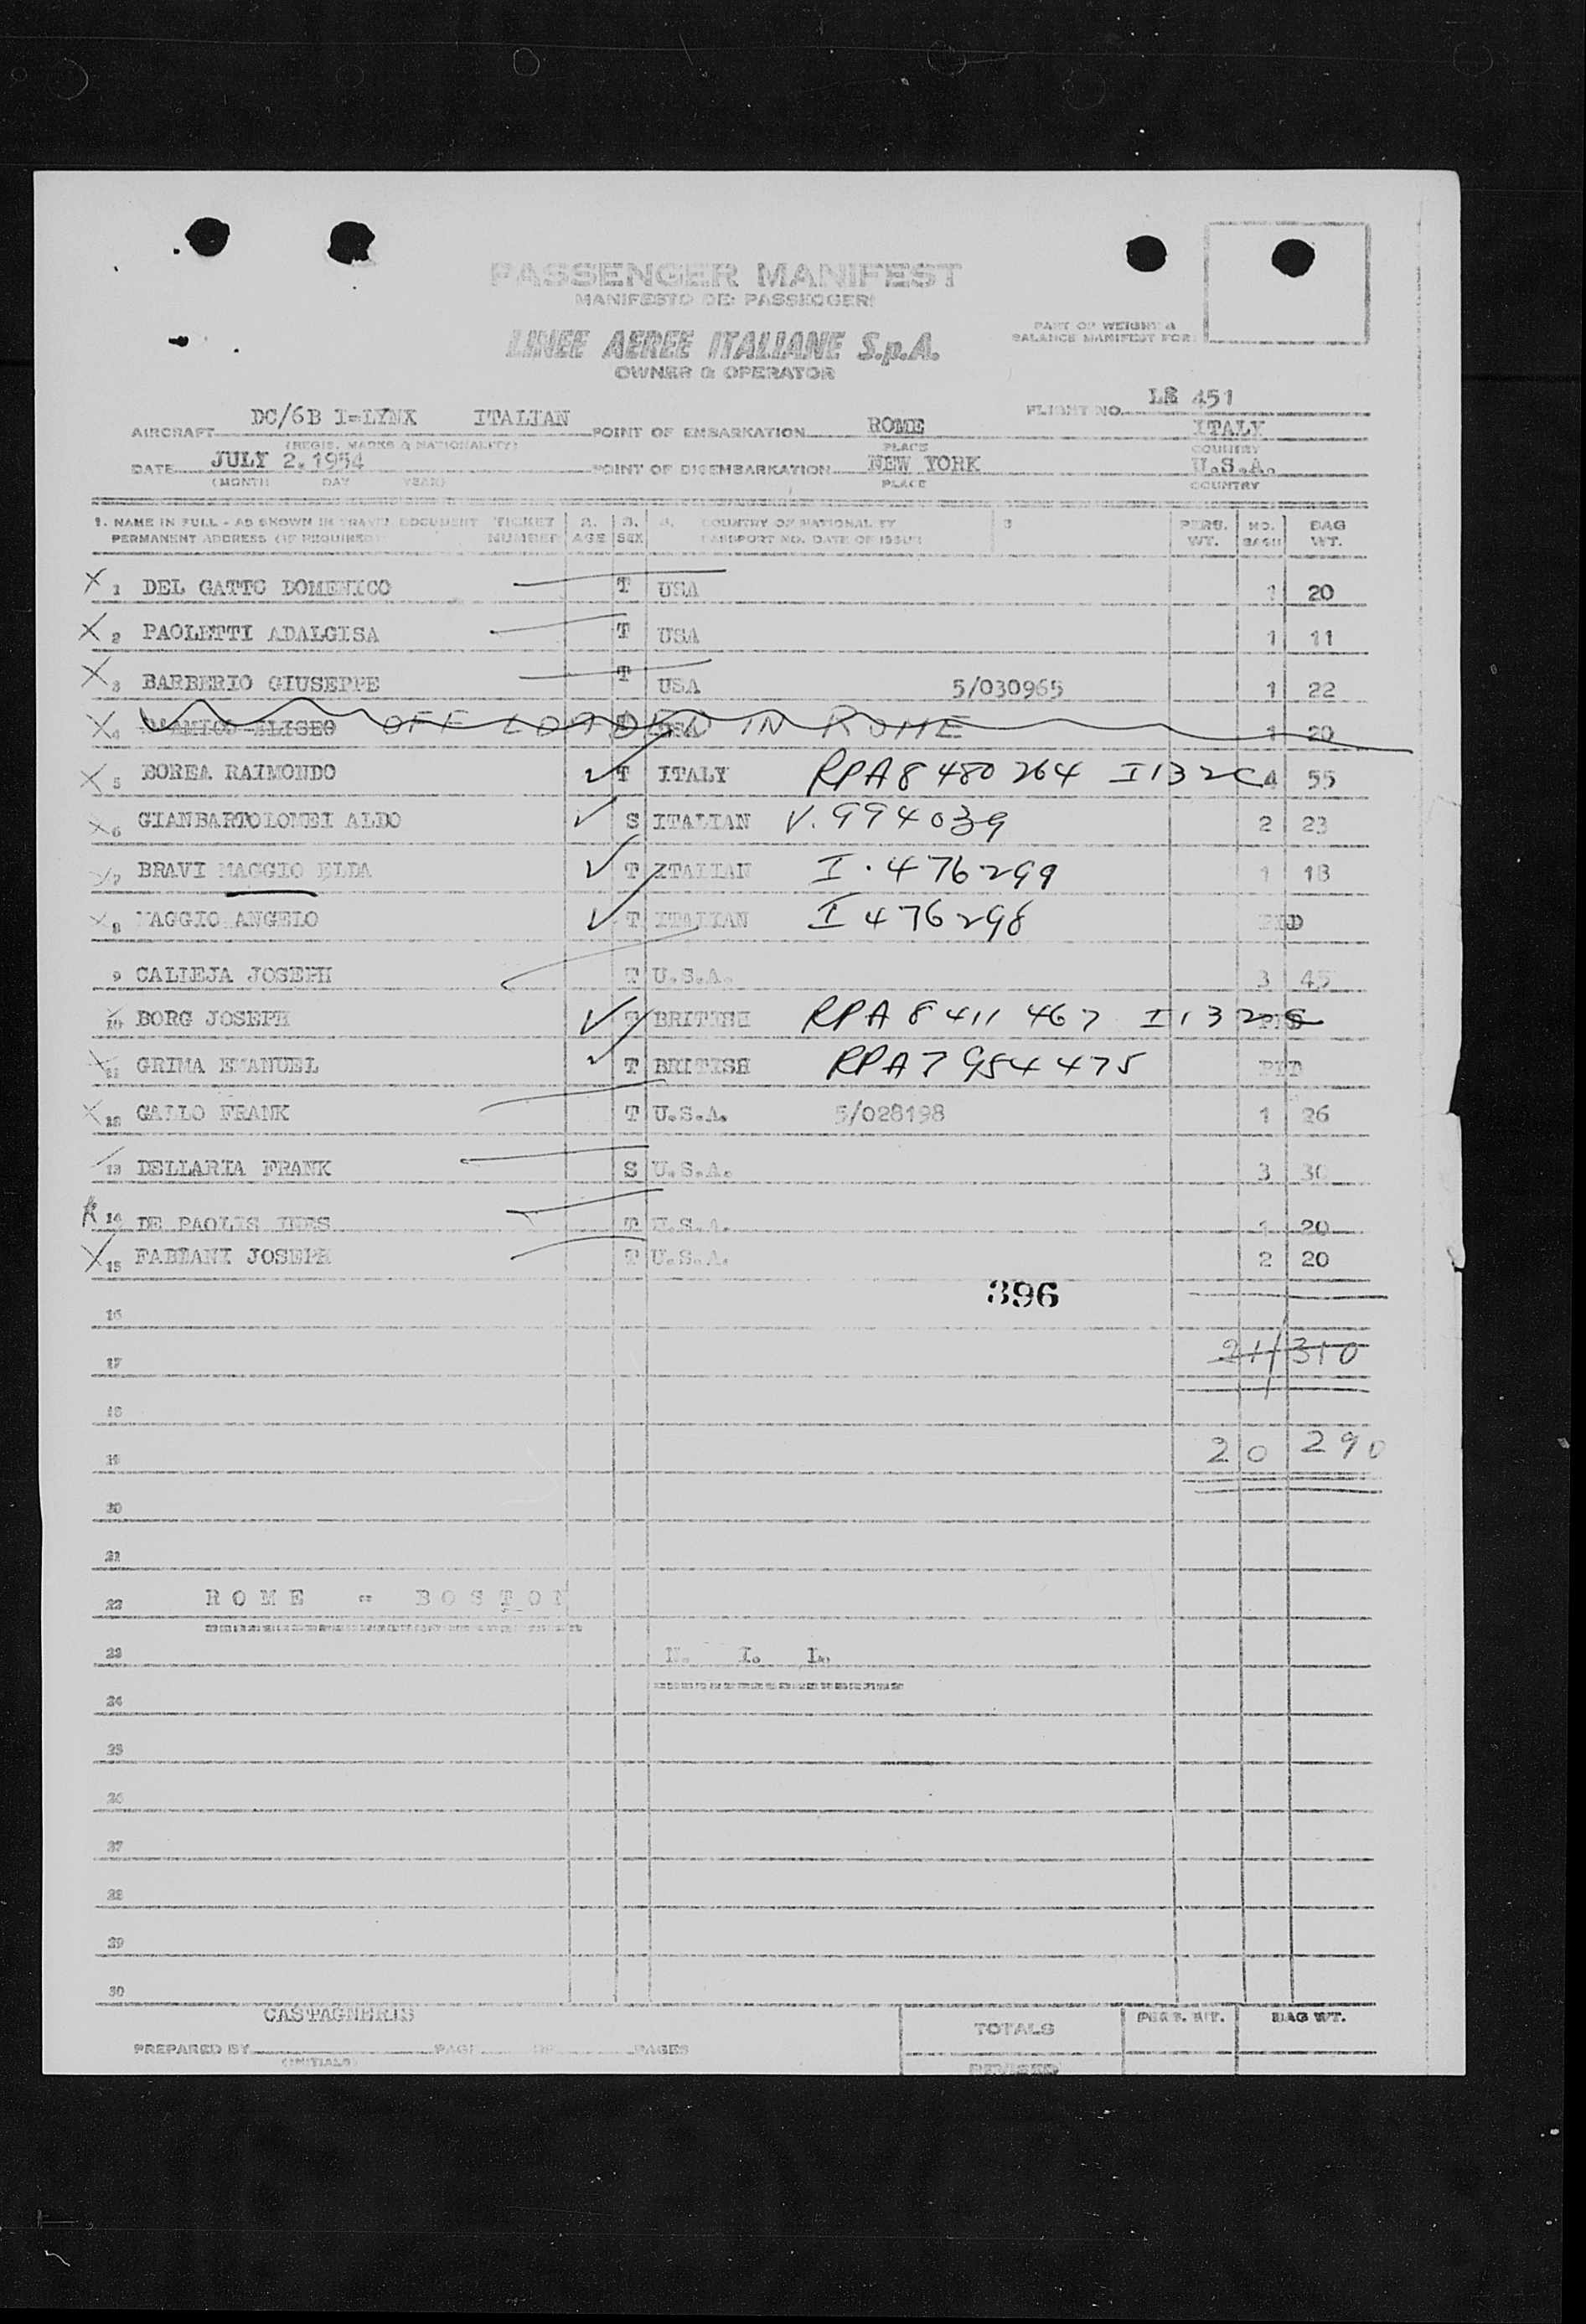 PASSENGER MANIFEST
MANIFESTO DEI PASSEGGERI
LINEE AEREE ITALIANE S.p.A.
OWNER & OPERATOR
PART OF WEIGHT &
BALANCE MANIFEST FOR
FLIGHT NO. 451
AIRCRAFT DC/6B I-LYNX ITALIAN POINT OF EMBARKATION ROME ITALY
(REGIS. MARKS & NATIONALITY) PLACE COUNTRY
DATE JULY 2.1954 POINT OF DISEMBARKATION NEW YORK U.S.A.
(MONTH DAY YEAR) PLACE COUNTRY
1. NAME IN FULL - AS SHOWN IN TRAVEL DOCUMENT TICKET 2. 3. 4. COUNTRY OF NATIONALITY PERS. NO. BAG
PERMANENT ADDRESS (IF REQUIRED) NUMBER AGE SEX PASSPORT NO. DATE OF ISSUE WT. BAGS WT.
X 1 DEL GATTO DOMENICO T USA 1 20
X 2 PAOLETTI ADALGISA T USA 1 11
X 3 BARBERIO GIUSEPPE T USA 5/030965 1 22
X 4 D'AMICO ELISEO OFF LOADED IN ROME USA 1 20
X 5 BOREA RAIMONDO T ITALY RPA 8 480 264 I 132C 4 55
X 6 GIANBARTOLOMEI ALDO S ITALIAN V. 994039 2 23
7 BRAVI MAGGIO ELDA T ITALIAN I. 476299 1 18
X 8 MAGGIO ANGELO T ITALIAN I 476298
9 CALLEJA JOSEPH T U.S.A. 3 45
10 BORG JOSEPH T BRITISH RPA 8 411 467 I 132
11 GRIMA EMANUEL T BRITISH RPA 7 954 475
X 12 GALLO FRANK T U.S.A. 5/028198 1 26
13 DELLARIA FRANK S U.S.A. 3 30
14 DE PAOLIS INES T U.S.A. 1 20
X 15 FABIANI JOSEPH T U.S.A. 2 20
396
16
17 21/310
18
19 20 290
20
21
22 ROME = BOSTON
23 N. I. L.
24
25
26
27
28
29
30
CASTAGNERIS
PREPARED BY PAGE OF PAGES TOTALS PERS. WT. BAG WT.
(INITIALS)
REVISED